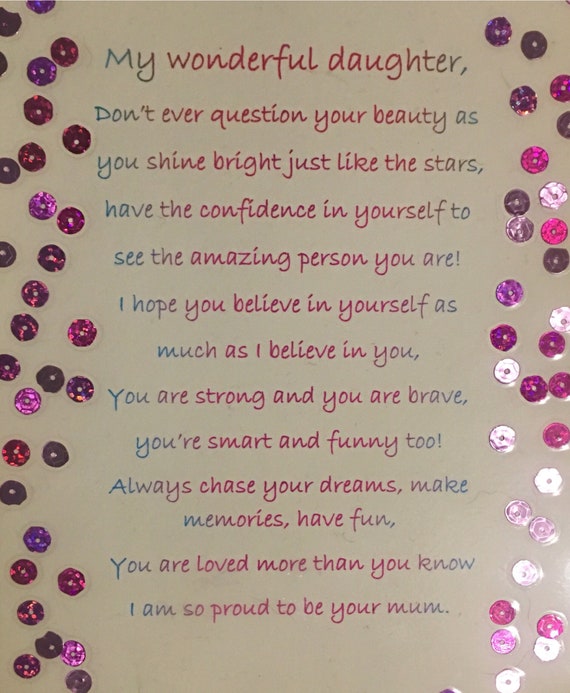 My wonderful daughter,
Don't ever question your beauty as
you shine bright just like the stars,
have the confidence in yourself to
see the amazing person you are!
I hope you believe in yourself as
much as I believe in you,
You are strong and you are brave,
you're smart and funny too!
Always chase your dreams, make
memories, have fun,
You are loved more than you know
I am so proud to be your mum.